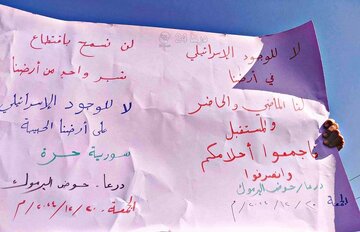 لا للوجود الإسرائيلي
في أرضنا
لنا الماضي والحاضر
والمستقبل
فاجمعوا أحلامكم
وانصرفوا
درعا/حوض اليرموك
الجمعة ٢٠/١٢/٢٠٢٤/م
لن نسمح باقتطاع
شبر واحد من أرضنا
لا للوجود الإسرائيلي
على أرضنا الحبيبة
سورية حرة
درعا. حوض اليرموك
الجمعة ٢٠/١٢/٢٠٢٤/م